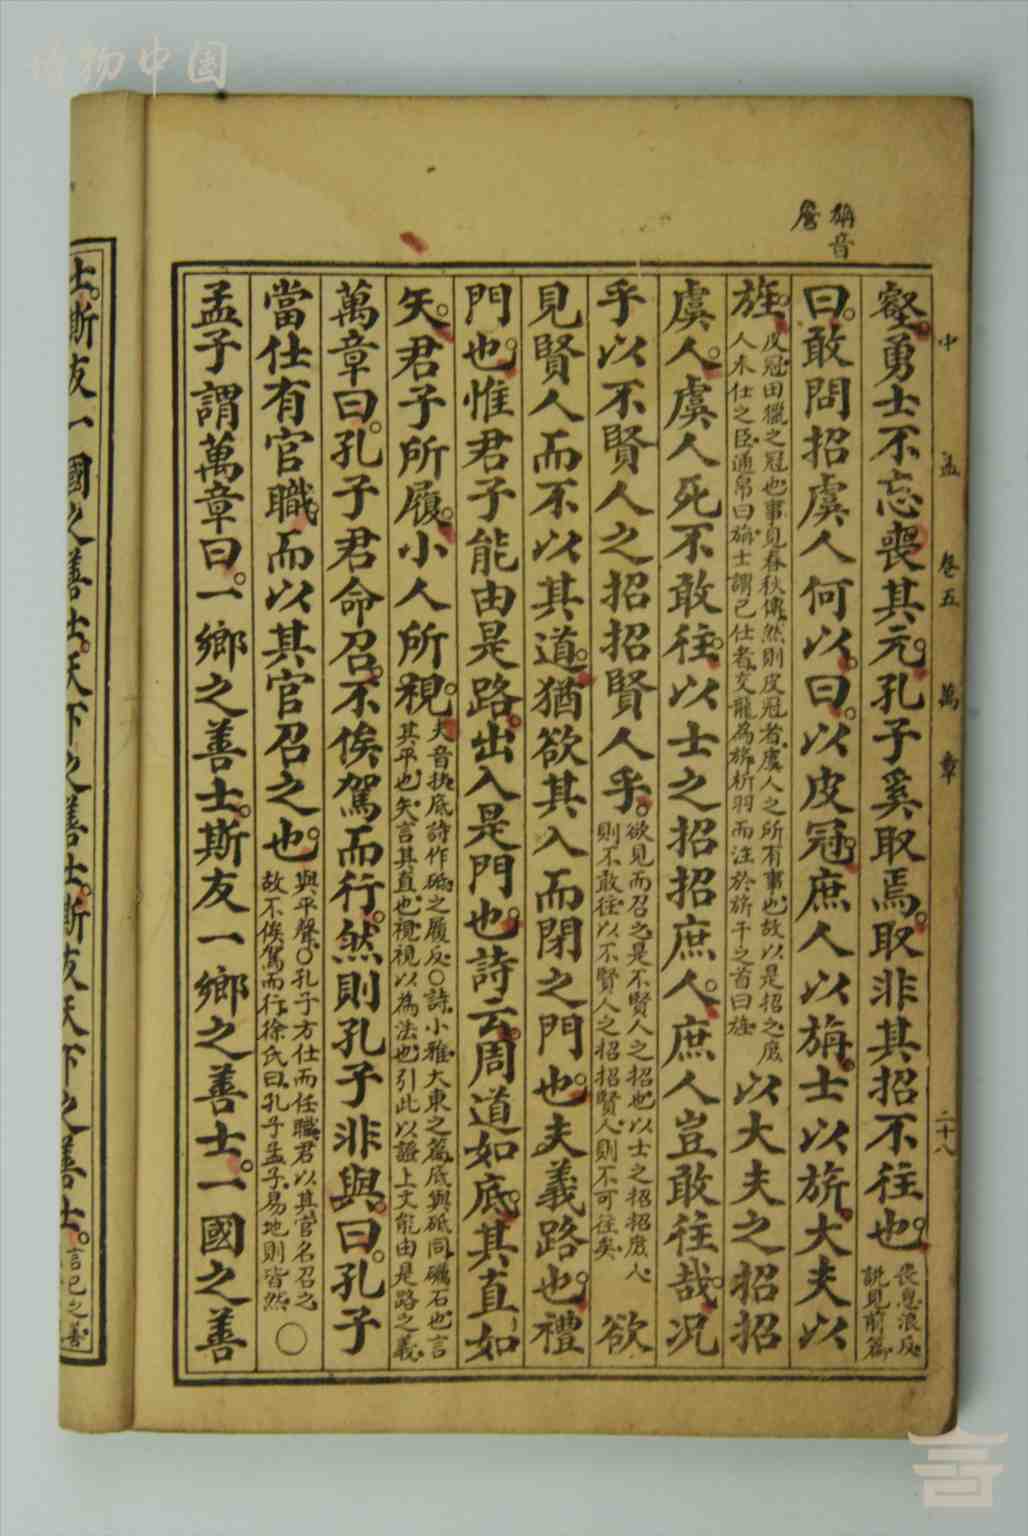 博物中国
旃音
詹
中孟 卷五 萬章 二十八
壑。勇士不忘喪其元。孔子奚取焉。取非其招不往也。喪息浪反。
說見前篇
曰。敢問招虞人何以。曰。以皮冠。庶人以旃。士以旂。大夫以
旌。皮冠。田獵之冠也。事見春秋傳。然則皮冠者。虞人之所有事也。故以是招之。庶
人未仕之臣。通帛曰旃。士謂已仕者。交龍為旂。析羽而注於旂干之首曰旌。
以大夫之招招
虞人。虞人死不敢往。以士之招招庶人。庶人豈敢往哉。况
乎以不賢人之招招賢人乎。欲見而召之。是不賢人之招也。以士之招招庶人。
則不敢往。以不賢人之招招賢人。則不可往矣。
欲
見賢人而不以其道。猶欲其入而閉之門也。夫義路也。禮
門也。惟君子能由是路。出入是門也。詩云。周道如底。其直如
矢。君子所履。小人所視。夫音扶。底詩作砥。之履反。○詩。小雅大東之篇。底與砥同。礪石也。言
其平也。矢。言其直也。視。視以為法也。引此以證上文能由是路之義。
萬章曰。孔子君命召。不俟駕而行。然則孔子非與。曰。孔子
當仕有官職。而以其官召之也。與平聲。○孔子方仕而任職。君以其官名召之
故不俟駕而行。徐氏曰。孔子孟子。易地則皆然。
○
孟子謂萬章曰。一鄉之善士。斯友一鄉之善士。一國之善
士。斯友一國之善士。天下之善士。斯友天下之善士。言己之善